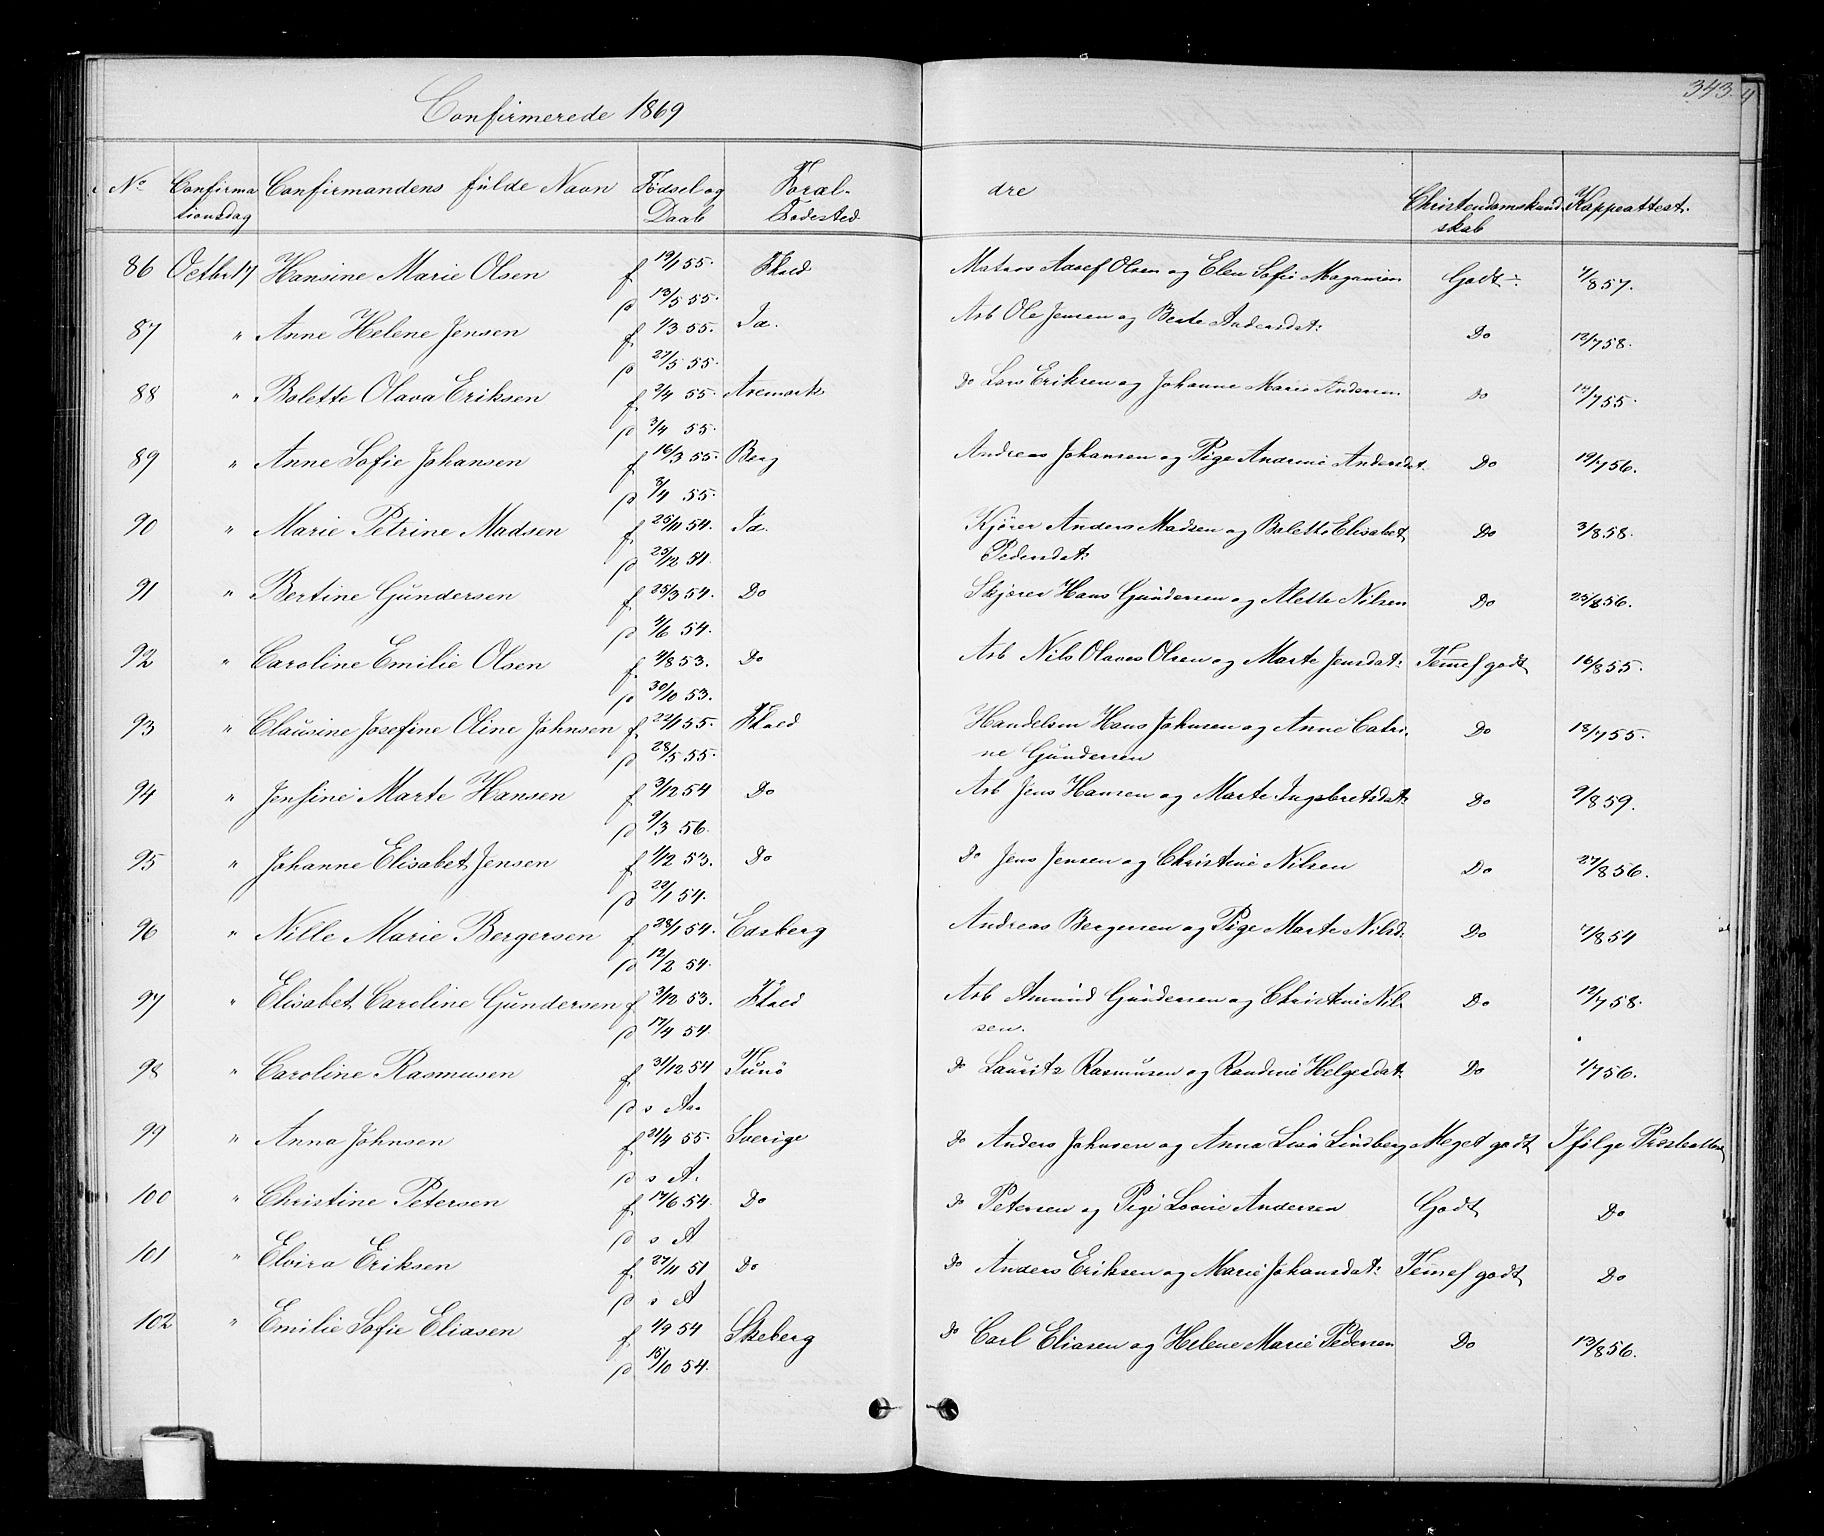 343.
Confirmerede 1869
No Confirma Confirmandens fulde Navn Fødsel og Foræl- dre Christendomskund Koppeattest.
tionsdag Daab Fødested skab
86 Octbr 17 Hansine Marie Olsen f 19/1 55. Fhald Matros Aasef Olsen og Elen Sofie Magnusen Godt 7/8 57.
d 13/5 55.
87 " Anne Helene Jensen f 1/3 55. Id. Arb Ole Jensen og Berte Andersdat: Do 12/7 58.
d 27/5 55.
88 " Bolette Olava Eriksen f 2/4 55. Aremark Do Lars Eriksen og Johanne Marie Andersen Do 17/7 55.
d 3/4 55.
89 " Anne Sofie Johansen f 16/3 55. Berg Andreas Johansen og Pige Andrine Andersdat. Do 19/7 56.
d 3/4 55.
90 " Marie Petrine Madsen f 25/11 54. Id. Kjører Anders Madsen og Bolette Elisabet Do 3/8 58.
d 25/12 54. Pedersdat:
91 " Bertine Gundersen f 25/3 54. Do Skjører Hans Gundersen og Alette Nilsen Do 25/8 56.
d 4/6 54.
92 " Caroline Emilie Olsen f 4/8 53. Do Arb Nils Olaves Olsen og Marte Jensdat: Temel godt 16/8 55.
d 30/10 53.
93 " Clausine Josefine Oline Johnsen f 22/1 55. Fhald Handelsm Hans Johnsen og Anne Catri- Do 18/7 55.
d 28/5 55. ne Gundersen
94 " Jensine Marte Hansen f 3/12 54 Do Arb Jens Hansen og Marte Ingebretsdat: Do 9/8 59.
d 9/3 56.
95 " Johanne Elisabet Jensen f 1/12 53. Do Do Jens Jensen og Christine Nilsen Do 27/8 56.
d 22/1 54.
96 " Nille Marie Bergersen f 28/1 54. Easberg Andreas Bergersen og Pige Marte Nilsd: Do 7/8 54
d 12/2 54.
97 " Elisabet Caroline Gundersen f 3/12 53. Fhald Arb Amund Gundersen og Christine Nil- Do 12/7 58.
d 17/4 54. sen.
98 " Caroline Rasmusen f 31/12 54 Tunø Do Lauritz Rasmusen og Randine Helgesdat: Do 1/7 56.
d s A.
99 " Anna Johnsen f 21/4 55. Sverige Do Anders Johnsen og Anna Lisa Lindberg Meget godt Ifølge Presteattest
d s A.
100 " Christine Petersen f 17/6 54. Do Do Petersen og Pige Lovise Andersen Godt Do
d s A
101 " Elvira Eriksen f 27/11 51 Do Do Anders Eriksen og Marie Johansdat: Temel godt Do
d s A
102 " Emilie Sofie Eliasen f 1/9 54 Skeberg Do Carl Eliasen og Helene Marie Pedersen Do 13/8 56.
d 15/10 54.